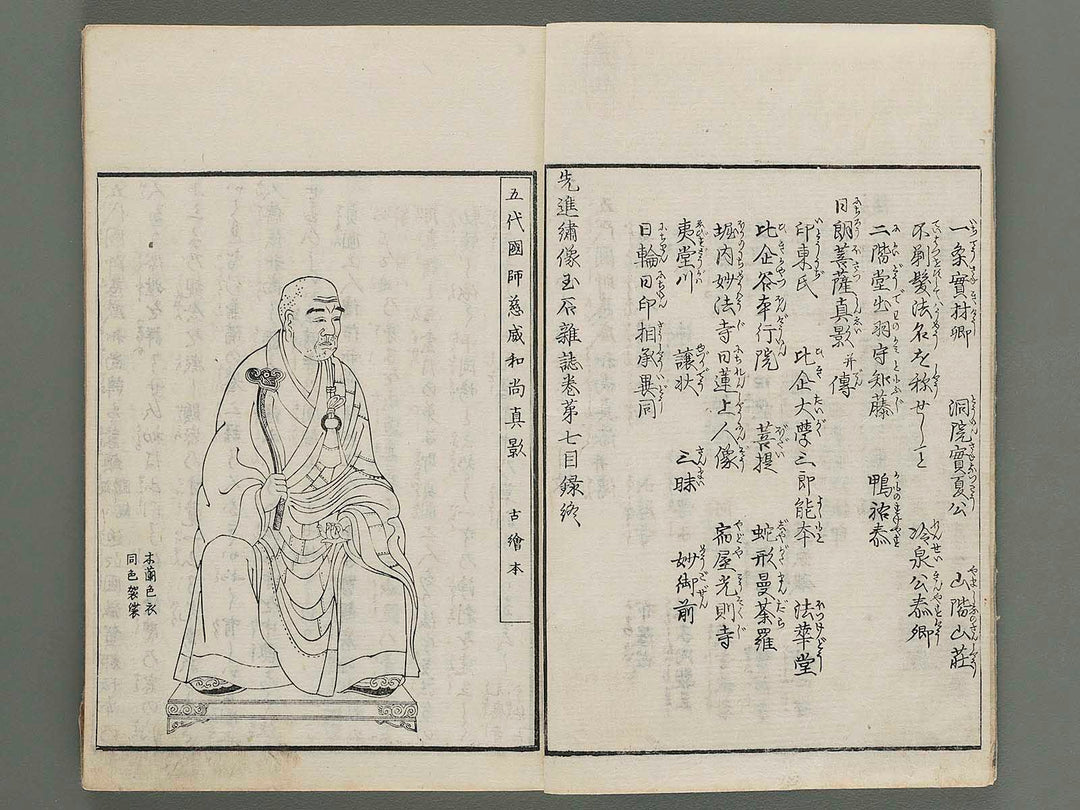 一条實材卿 洞院實夏公 山階山莊
不剃髪法名を称せしこと 冷泉公泰卿
二階堂出羽守知藤 鴨祐泰
日朗菩薩真影并傳
印東氏 比企大學三郎能本 法華堂
比企谷本行院 菩提 蛇形曼荼羅
堀内妙法寺日蓮上人像 宿屋光則寺
夷堂川 讓状 三昧 妙御前
日輪日印相承異同
先進繡像玉石雜誌卷第七目録終
五代國師慈威和尚真影 古繪本
木蘭色衣
同色袈裟